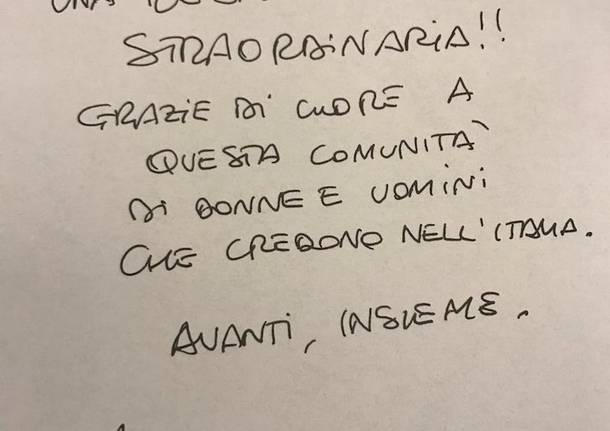 UNA
STRAORDINARIA!!
GRAZIE DI CUORE A
QUESTA COMUNITÀ
DI DONNE E UOMINI
CHE CREDONO NELL'ITALIA.
AVANTI, INSIEME.